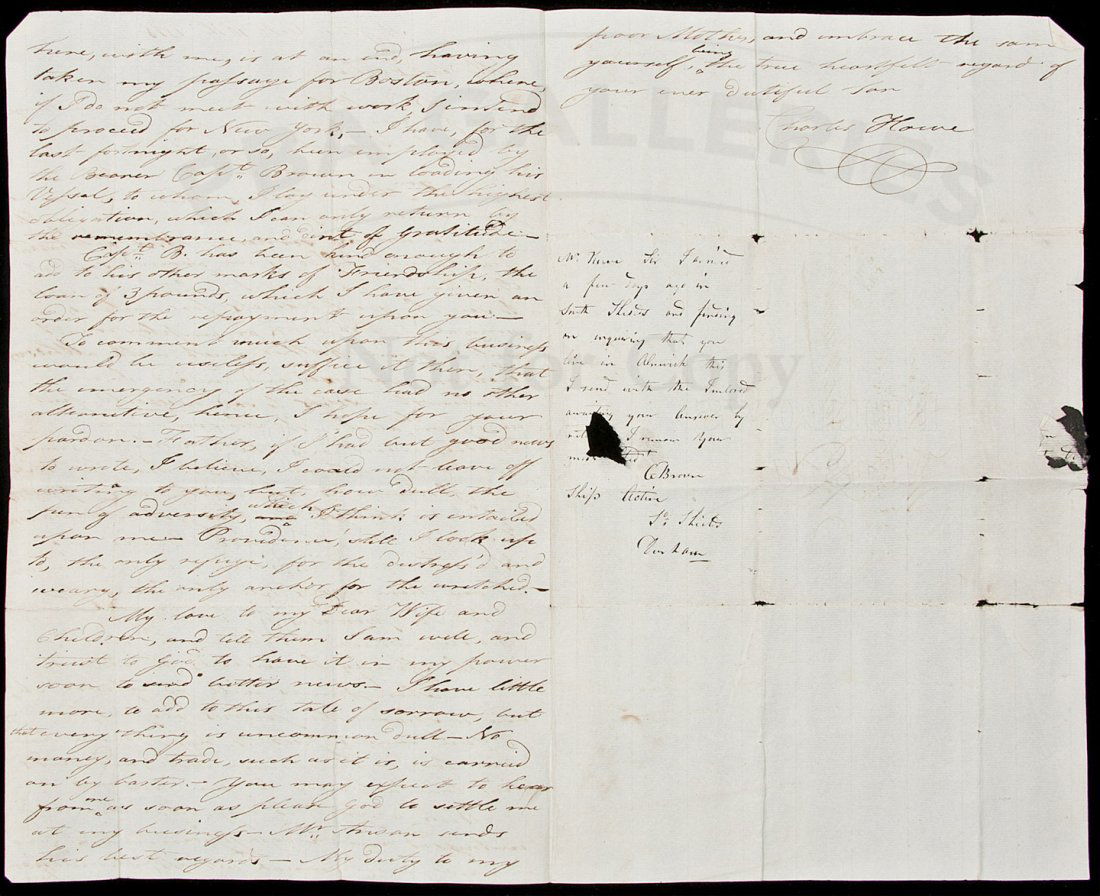 here, with me, is at an end, having
taken my passage for Boston, where,
if I do not meet with work I intend
to proceed for New York,— I have, for the
last fortnight, or so, been imployed by
the Bearer Capt. Brown in loading his
Vessel, to whom I lay under the highest
obligation, which I can only return by
the remembrance, and dint of Gratitude—
Capt. B. has been kind enough to
ad to his other marks of Friendship, the
loan of 3 pounds, which I have given an
order for the repayment upon you—
To comment much upon this business
would be useless, suffice it then, that
the emergency of the case had no other
alternitive, hence, I hope for your
pardon.— Father, if I had but good news
to write, I believe, I could not leave off
writing to you, but, how dull, the
pen of adversity, which I think is entailed
upon me— Providence, still I look up
to, the only refuge, for the distress'd and
weary, the only anchor for the wretched.—
My love to my Dear Wife and
Children, and tell them I am well, and
trust to God to have it in my power
soon to send better news— I have little
more, to add to this tale of sorrow, but
that every thing is uncommon dull— No
money, and trade, such as it is, is carried
on by barter.— You may expect to hear
from me as soon as please God to settle me
at my business— Mr. Anson sends
his best regards— My duty to my
poor Mother, and embrace the same
yourself being the true heartfelt regard of
your ever dutiful Son
Charles Howe
Mr. Howe Sir I arived
a few days ago in
South Shields and finding
on inquiring that you
live in Alnwick this
I send with the Inclosd
awaiting your Answer by
I remain Your
C Brown
Ship Active
So. Shields
Durham
GALLERIES
Not for Copy